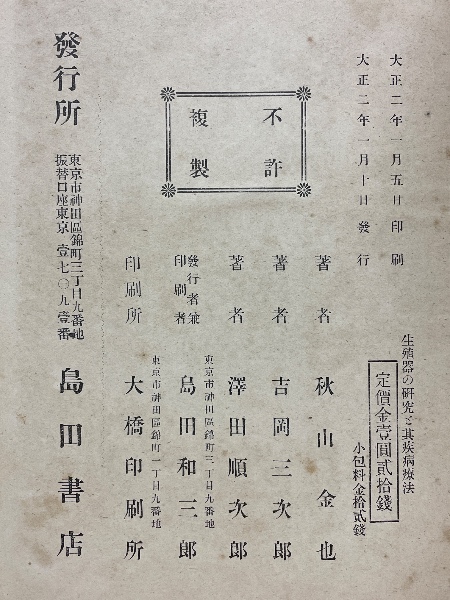 大正二年一月五日印刷
大正二年一月十日發行
生殖器の研究と其疾病療法
定價金壹圓貳拾錢
小包料金拾貳錢
不許
複製
著者 秋山金也
著者 吉岡三次郎
著者 澤田順次郎
東京市神田區錦町三丁目九番地
發行者兼
印刷者 島田和三郎
東京市神田區錦町三丁目九番地
印刷所 大橋印刷所
發行所
東京市神田區錦町三丁目九番地
振替口座東京壹七〇九壹番
島田書店